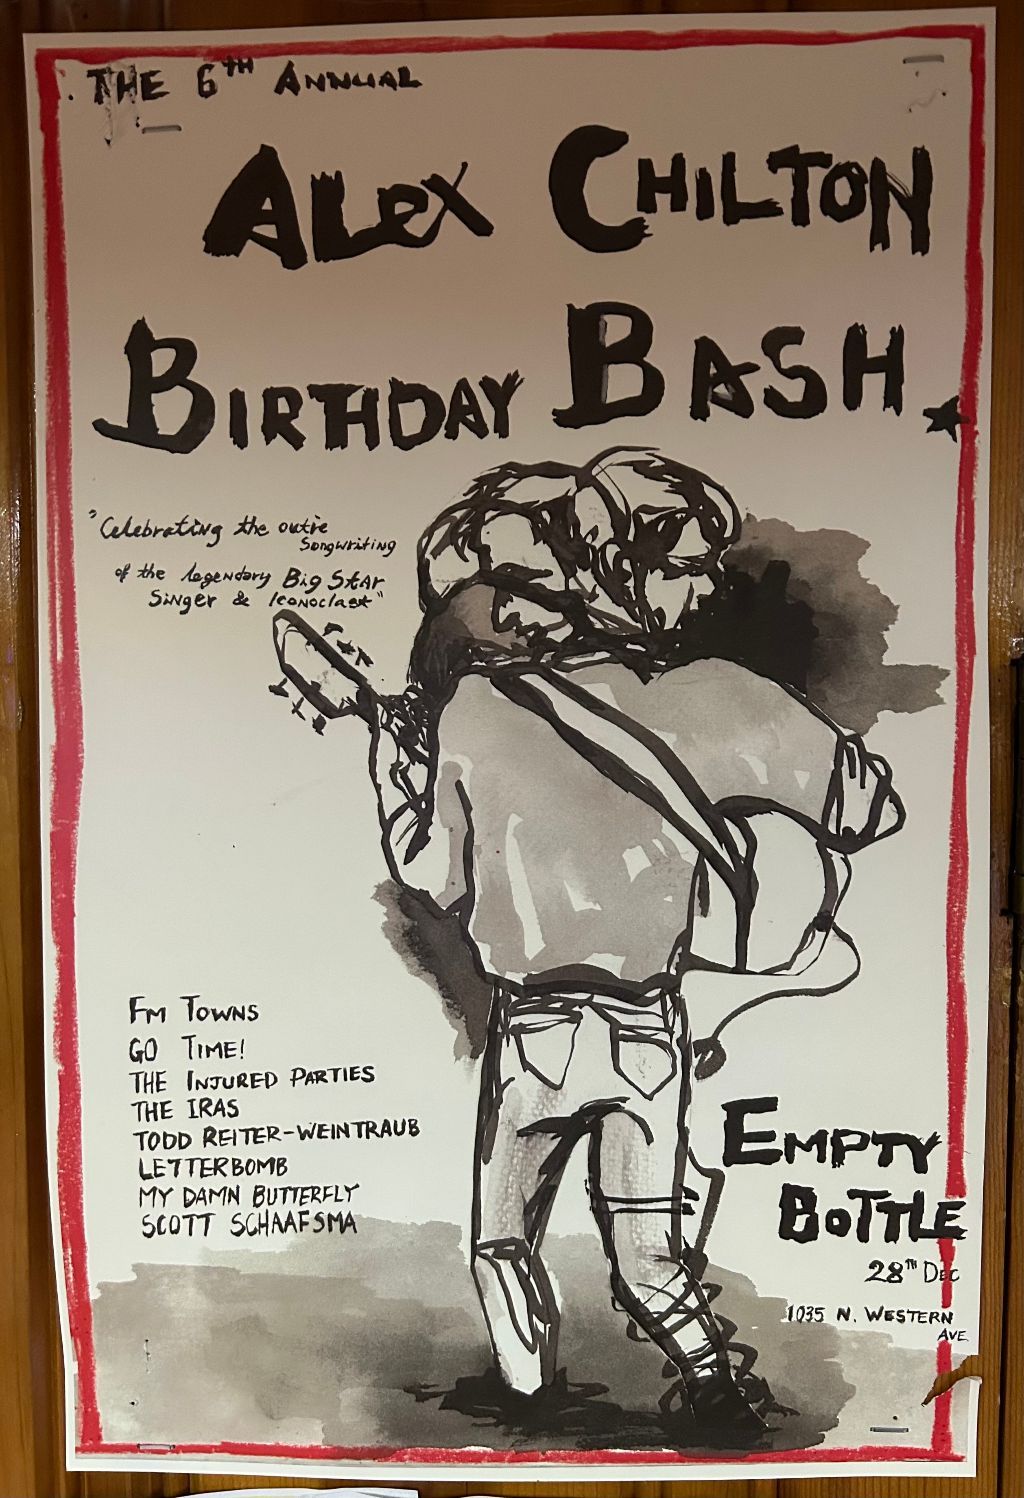 THE 6TH ANNUAL
ALEX CHILTON
BIRTHDAY BASH
"Celebrating the outré
Songwriting
of the legendary Big Star
Singer & Iconoclast"
FM TOWNS
GO TIME!
THE INJURED PARTIES
THE IRAS
TODD REITER-WEINTRAUB
LETTERBOMB
MY DAMN BUTTERFLY
SCOTT SCHAAFSMA
EMPTY
BOTTLE
28TH DEC
1035 N. WESTERN
AVE.